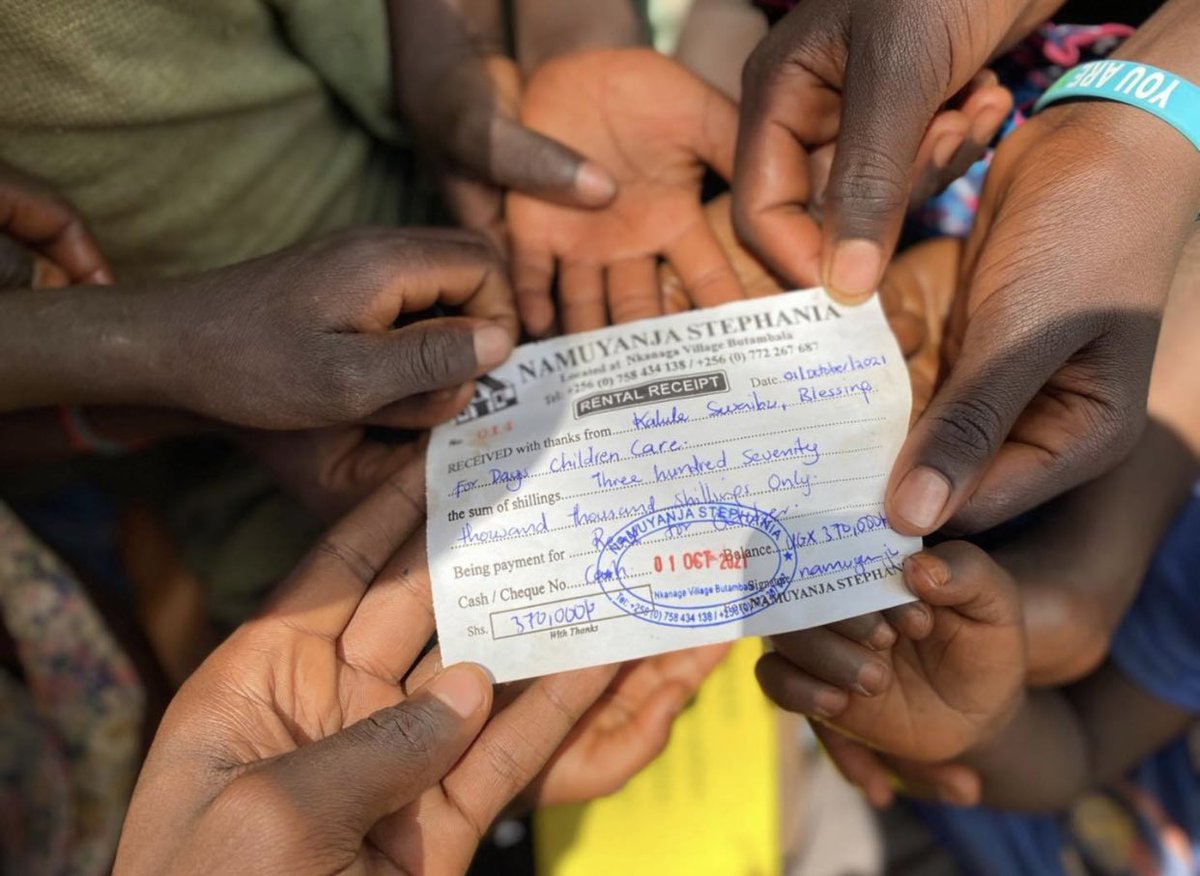 NAMUYANJA STEPHANIA
Located at Nkanaga Village Butambala
Tel: +256 (0) 758 434 138 / +256 (0) 772 267 687
RENTAL RECEIPT
Date 01/October/2021
No. 014
RECEIVED with thanks from Kalule Swaibu, Blessing
For Days Children Care.
the sum of shillings Three hundred Seventy
thousand thousand shillings Only.
Being payment for Rent for October
Cash / Cheque No. Cash Balance UGX 370,000
Shs. 370,000/= Signature
With Thanks
For: NAMUYANJA STEPHANIA
NAMUYANJA STEPHANIA
01 OCT 2021
Nkanage Village Butambala
Tel: +256 (0) 758 434 138 / +256 (0)
YOU ARE